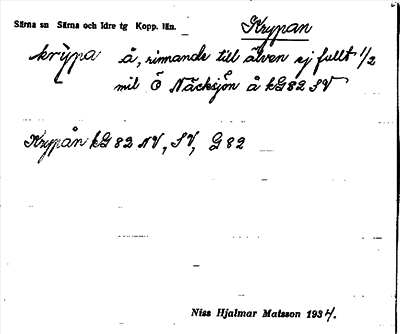 Särna sn Särna och Idre tg Kopp. län. Krypan
krypa å, rinnande till älven ej fullt 1/2
mil Ö Näcksjön å kG82 SV
Krypån kG82 NV, SV, G82
Niss Hjalmar Matsson 1934.